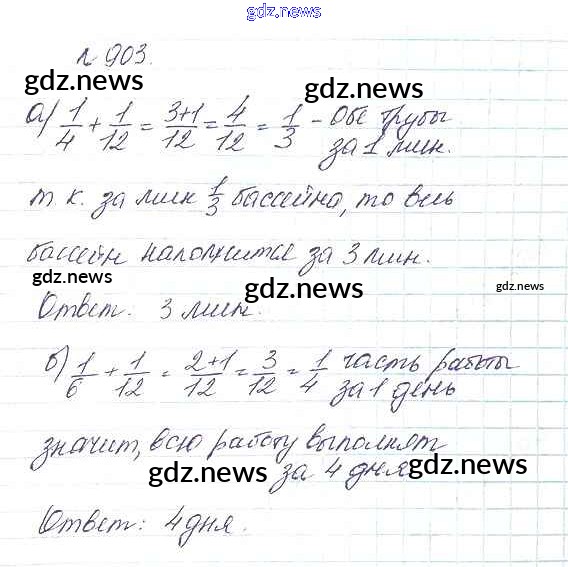 gdz.news
№ 903.
gdz.news gdz.news
а) 1/4 + 1/12 = 3+1/12 = 4/12 = 1/3 - Обе трубы
за 1 мин.
т. к. за мин 1/3 бассейна, то весь
бассейн наполнится за 3 мин.
gdz.news gdz.news gdz.news
Ответ: 3 мин.
б) 1/6 + 1/12 = 2+1/12 = 3/12 = 1/4 часть работы
за 1 день
gdz.news gdz.news
значит, всю работу выполнят
за 4 дня
gdz.news gdz.news
Ответ: 4 дня.
gdz.news